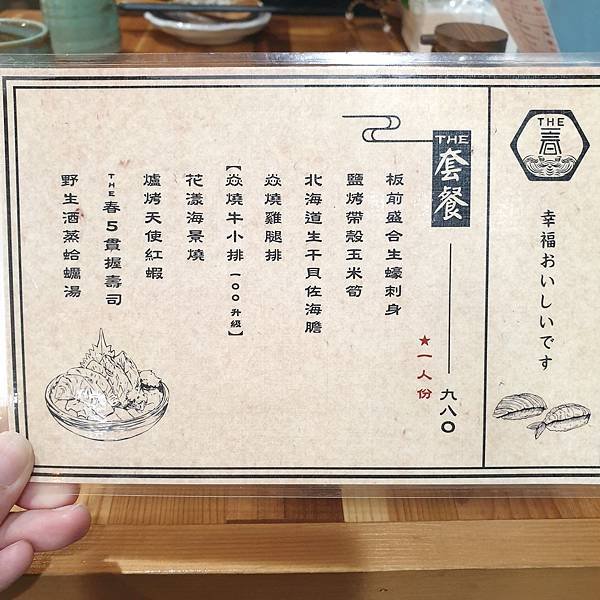 THE
春
幸福おいしいです
THE
套餐
九八〇
★一人份
板前盛合生蠔刺身
鹽烤帶殼玉米筍
北海道生干貝佐海膽
焱燒雞腿排
【焱燒牛小排 一〇〇升級】
花漾海景燒
爐烤天使紅蝦
THE春5貫握壽司
野生酒蒸蛤蠣湯